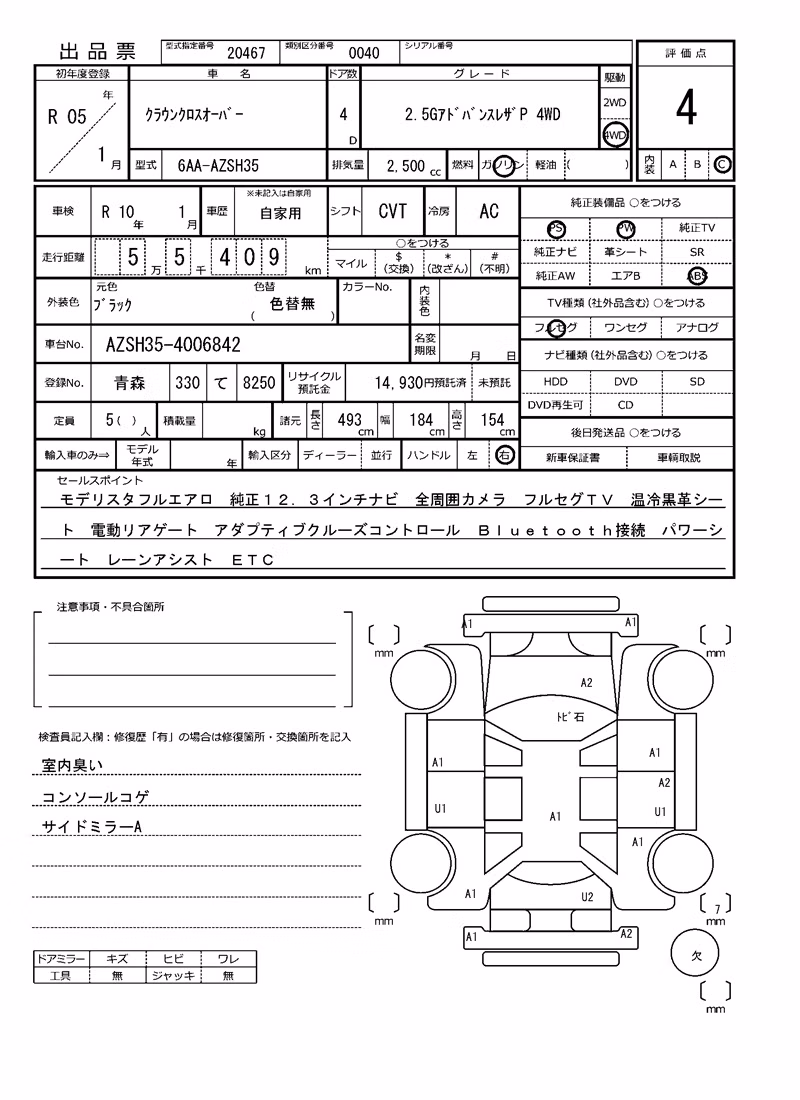 出品票
型式指定番号 20467 類別区分番号 0040 シリアル番号
評価点
4
内装 A B C
初年度登録 車名 ドア数 グレード 駆動
R 05 年 1 月
クラウンクロスオーバー 4 D 2.5GアドバンスレザP 4WD
2WD
4WD
型式 6AA-AZSH35 排気量 2,500 cc 燃料 ガソリン 軽油 ( )
車検 R 10 年 1 月 車歴 ※未記入は自家用 自家用 シフト CVT 冷房 AC
走行距離 5 万 5 千 4 0 9 km
○をつける
マイル $(交換) *(改ざん) #(不明)
外装色 元色 ブラック 色替 ( 色替無 ) カラーNo. 内装色
車台No. AZSH35-4006842 名変期限 月 日
登録No. 青森 330 て 8250 リサイクル預託金 14,930円預託済 未預託
定員 5 ( ) 人 積載量 kg 諸元 長さ 493 cm 幅 184 cm 高さ 154 cm
輸入車のみ⇒ モデル年式 年 輸入区分 ディーラー 並行 ハンドル 左 右
純正装備品 ○をつける
PS PW 純正TV
純正ナビ 革シート SR
純正AW エアB ABS
TV種類(社外品含む) ○をつける
フルセグ ワンセグ アナログ
ナビ種類(社外品含む) ○をつける
HDD DVD SD
DVD再生可 CD
後日発送品 ○をつける
新車保証書 車輌取説
セールスポイント
モデリスタフルエアロ 純正12.3インチナビ 全周囲カメラ フルセグTV 温冷黒革シー
ト 電動リアゲート アダプティブクルーズコントロール Bluetooth接続 パワーシ
ート レーンアシスト ETC
注意事項・不具合箇所
検査員記入欄:修復歴「有」の場合は修復箇所・交換箇所を記入
室内臭い
コンソールコゲ
サイドミラーA
ドアミラー キズ ヒビ ワレ
工具 無 ジャッキ 無
A1 A1
mm mm
A2
トビ石
A1 A1
A2
U1 A1 U1
A1
A1 U2
mm 7 mm
A1 A2
欠
mm